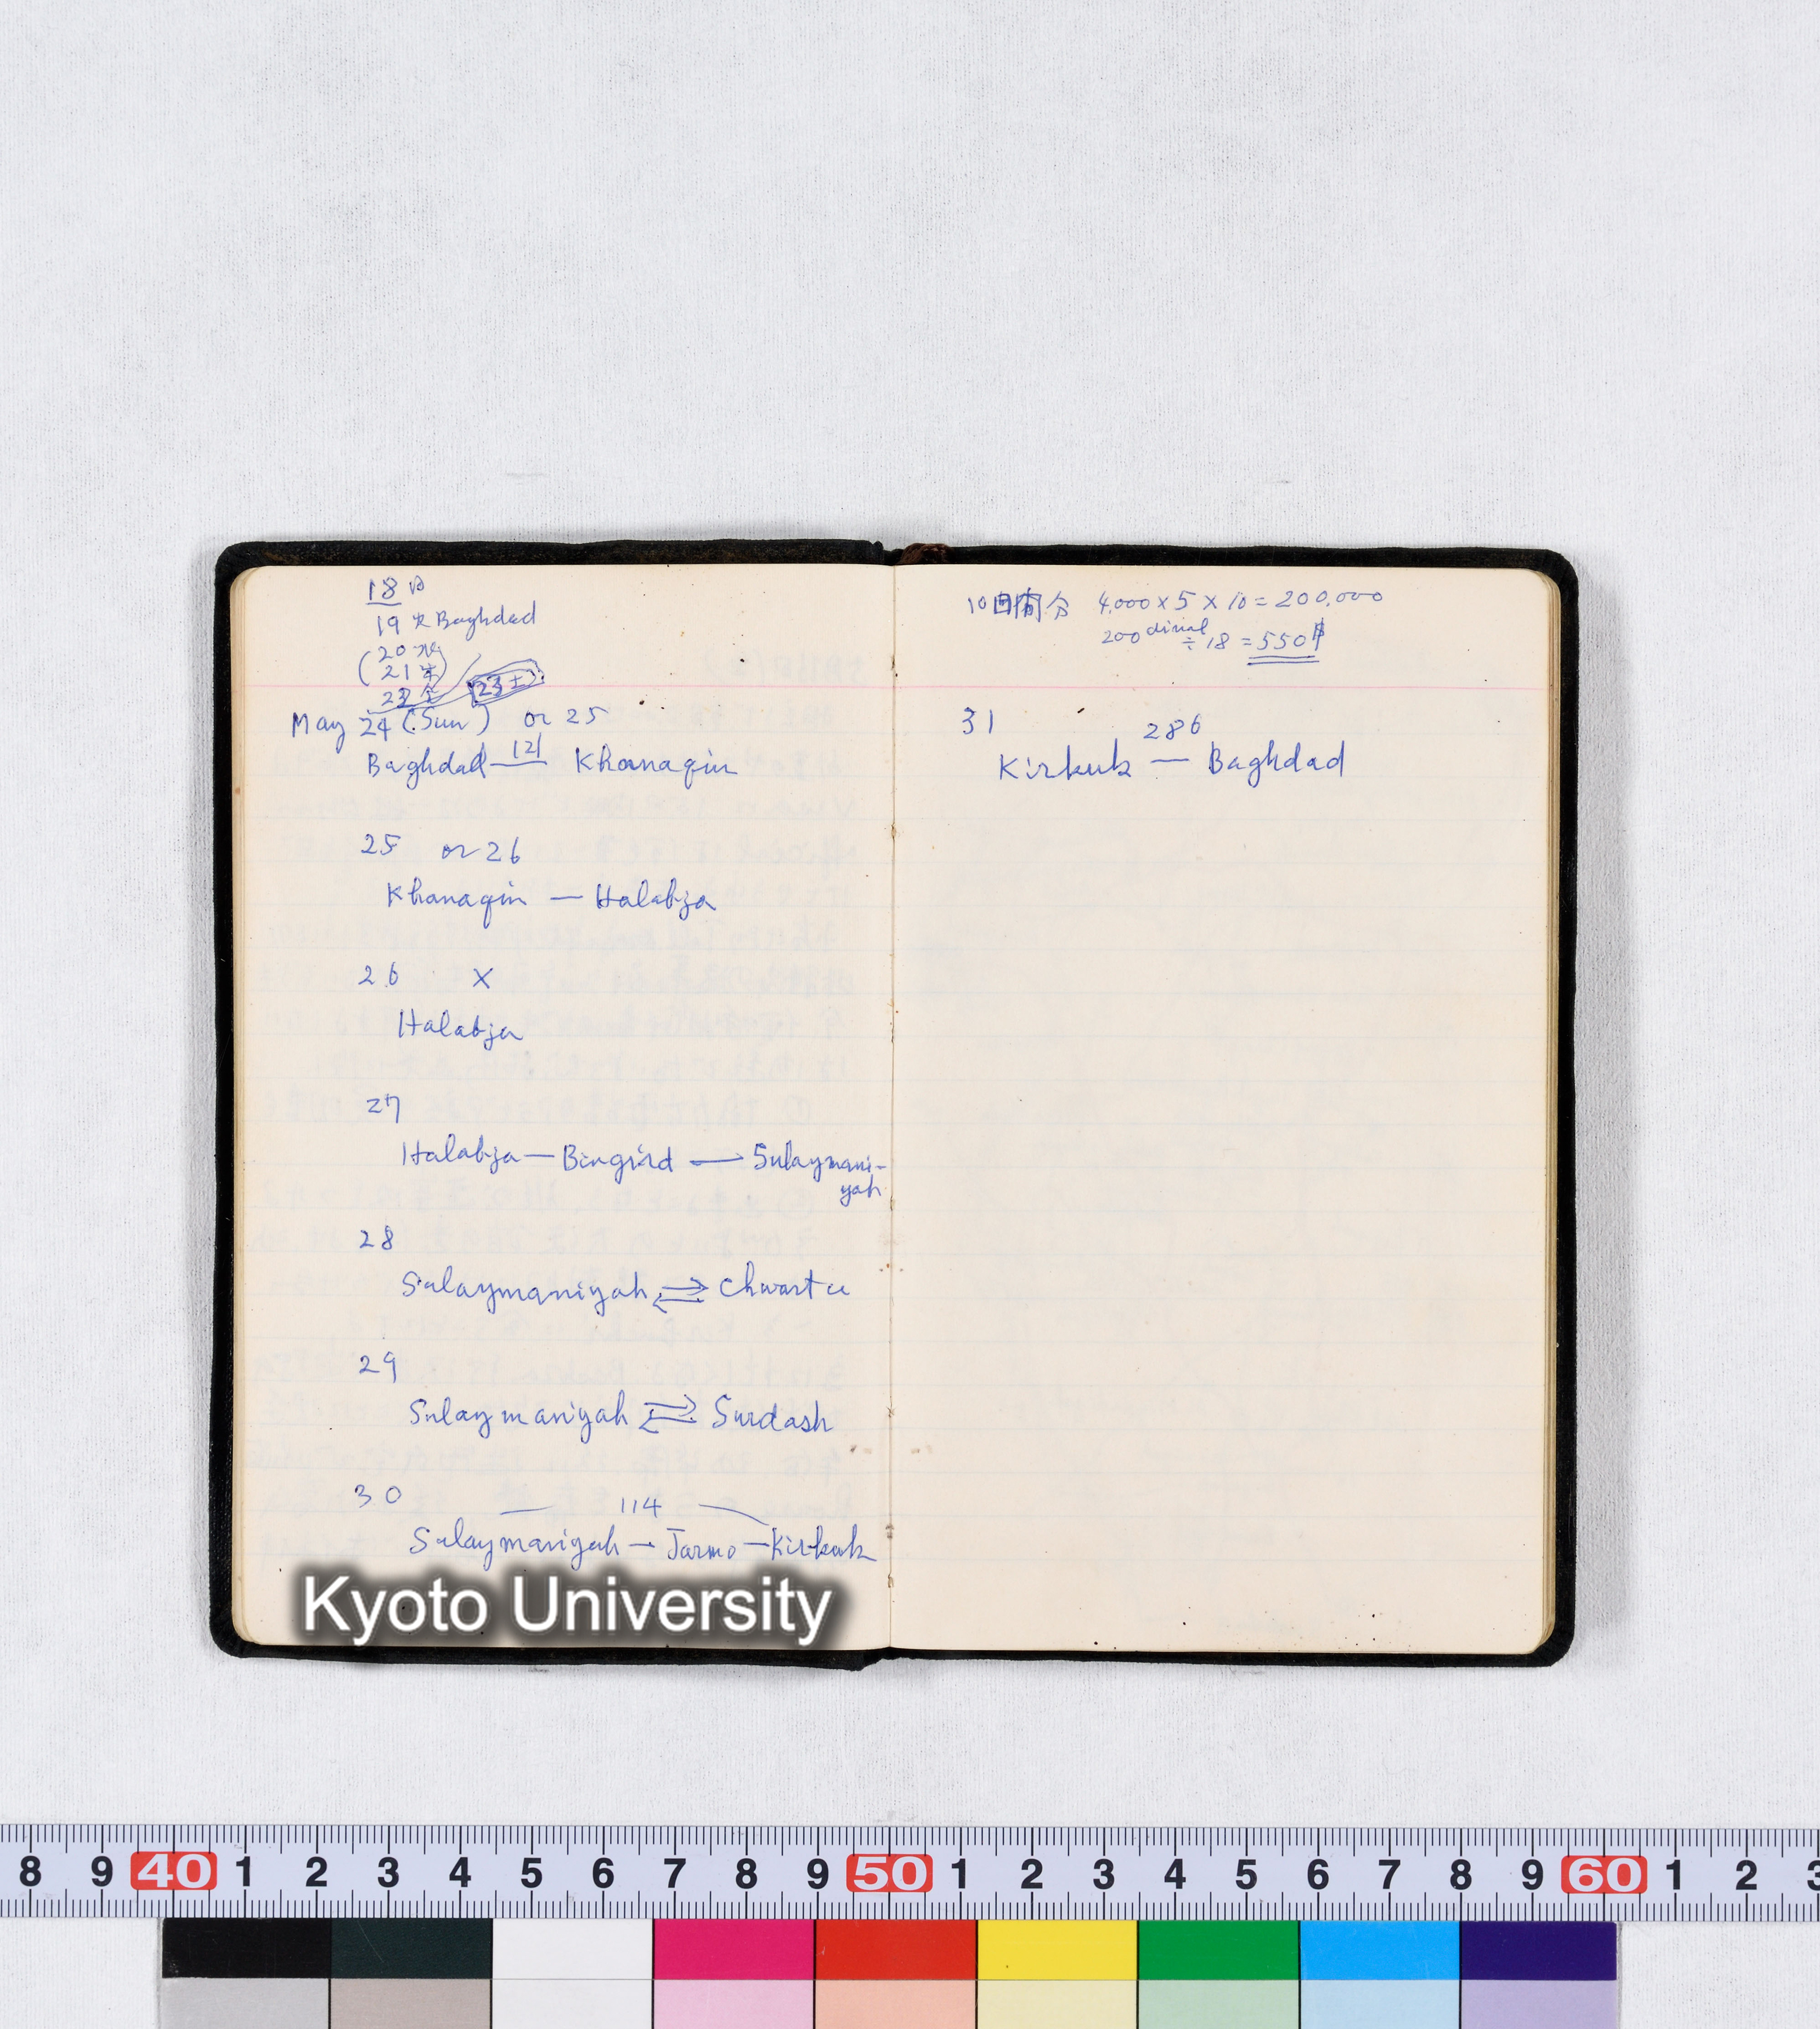 18 月
19 火 Baghdad
(20 水
21 木)
22 金 23 土
May 24 (Sun) or 25
Baghdad — 121 Khanaqin
25 or 26
Khanaqin — Halabja
26 ×
Halabja
27
Halabja — Bingird — Sulaymani-
yah
28
Sulaymaniyah ⇄ Chwarta
29
Sulaymaniyah ⇄ Surdash
30
114
Sulaymaniyah — Jarmo — Kirkuk
10日間分 4,000 × 5 × 10 = 200,000
200 dinal ÷ 18 = 550 $
31
286
Kirkuk — Baghdad
Kyoto University
8 9 40 1 2 3 4 5 6 7 8 9 50 1 2 3 4 5 6 7 8 9 60 1 2 3